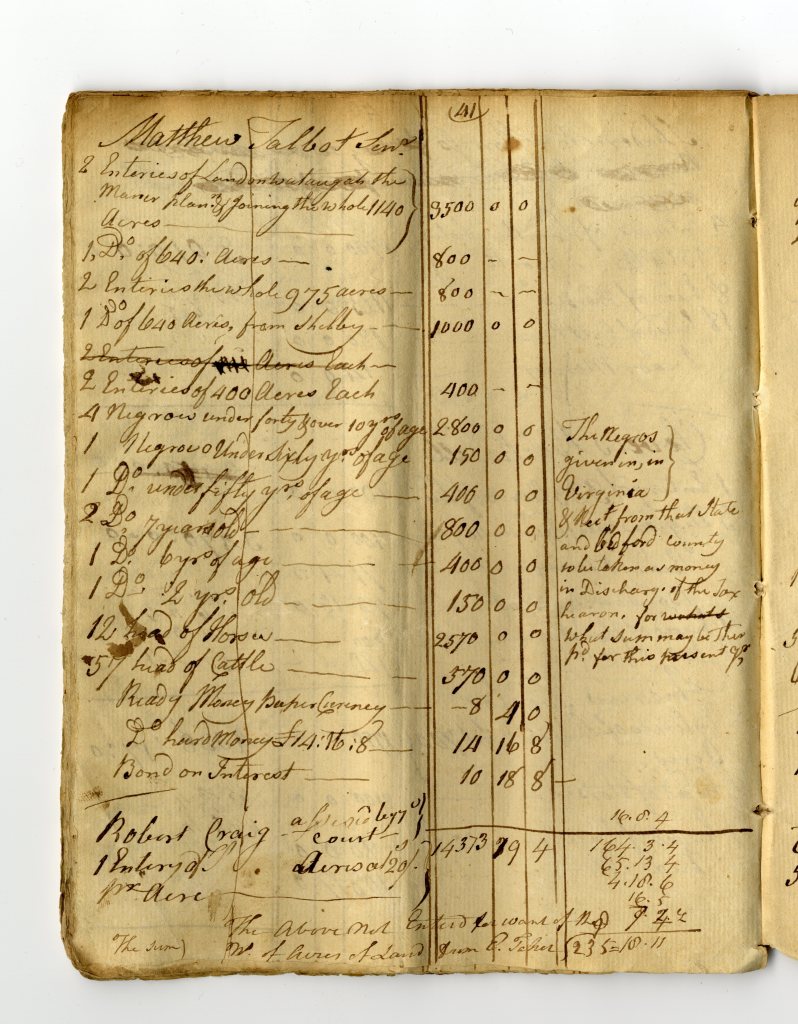 (41)
Matthew Talbot Senr.
2 Enteries of Land on Wataugah the
Maner plan. & Joining the whole 1140 3500 0 0
Acres
1, Do. of 640: Acres 800 - -
2 Enteries the whole 975 acres 800 - -
1 Do of 640 Acres, from Shelby 1000 0 0
2 Enteries of Acres Each
2 Enteries of 400 Acres Each 400 - -
4 Negroes under forty & over 10 yrs of age 2800 0 0
1 Negroe Under Sixty yrs of age 150 0 0
1 Do. under fifty yrs. of age 400 0 0
2 Do. 7 years old 800 0 0
1 Do. 6 yrs of age 400 0 0
1 Do. 2 yrs. old 150 0 0
12 head of Horses 2570 0 0
57 head of Cattle 570 0 0
Ready Money Paper Curency 8 4 0
Do hard Money £14:16:8 14 16 8
Bond on Interest 10 18 8
The Negros
given in, in
Virginia
& Rect. from that State
and bedford county
to be taken as money
in Discharge of the Tax
hearon, for whats
what sum may be ther
pd. for this present yr
16.8.4
Robert Craig by
court
14373 19 4
1 Entery of Acres at 20/
pr. Acre
164.3.4
65.13.4
4.18.6
16.5
The Above not Enterd for want of the
No. of Acres of Land from
The sum 235=18.11